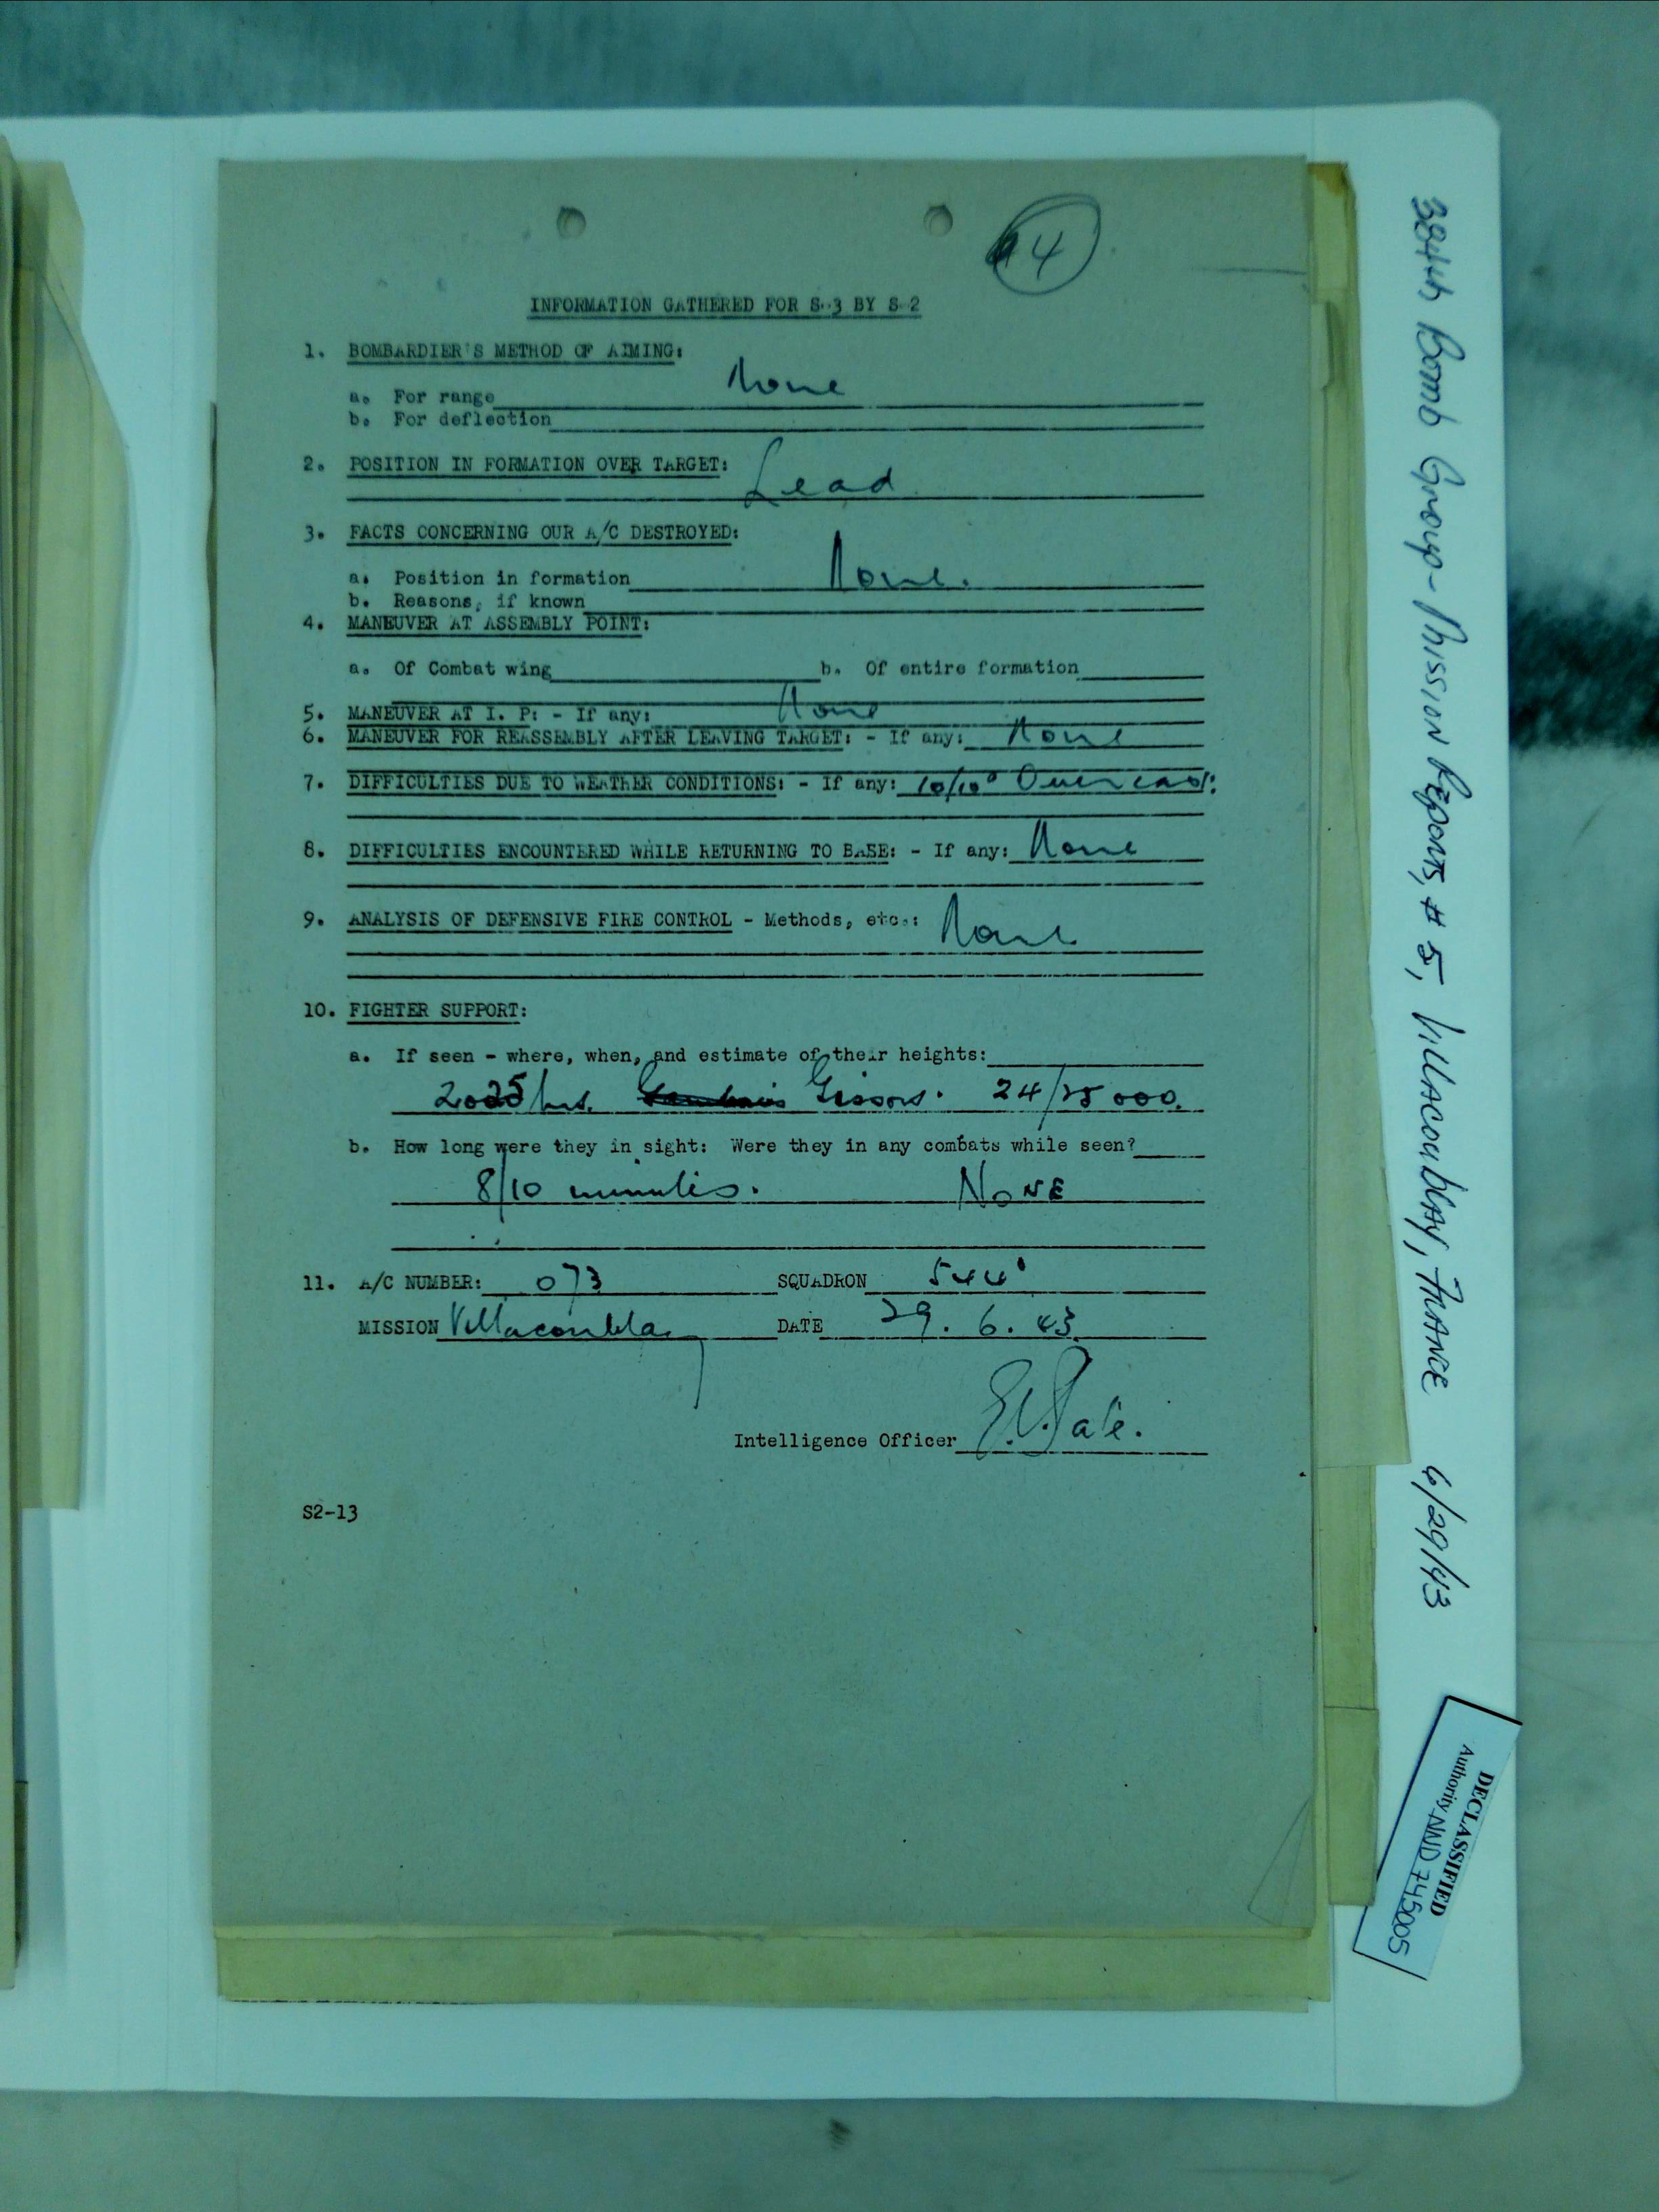 4
INFORMATION GATHERED FOR S-3 BY S-2
1. BOMBARDIER'S METHOD OF AIMING:
a. For range None
b. For deflection
2. POSITION IN FORMATION OVER TARGET: Lead
3. FACTS CONCERNING OUR A/C DESTROYED:
a. Position in formation None.
b. Reasons, if known
4. MANEUVER AT ASSEMBLY POINT:
a. Of Combat wing b. Of entire formation
5. MANEUVER AT I. P: - If any: None
6. MANEUVER FOR REASSEMBLY AFTER LEAVING TARGET: - If any: None
7. DIFFICULTIES DUE TO WEATHER CONDITIONS: - If any: 10/10 Overcast
8. DIFFICULTIES ENCOUNTERED WHILE RETURNING TO BASE: - If any: None
9. ANALYSIS OF DEFENSIVE FIRE CONTROL - Methods, etc.: None
10. FIGHTER SUPPORT:
a. If seen - where, when, and estimate of their heights:
2025 hrs. Gisors. 24/25000.
b. How long were they in sight: Were they in any combats while seen?
8/10 minutes. NONE
11. A/C NUMBER: 073 SQUADRON 544
MISSION Villacoublay DATE 29. 6. 43
Intelligence Officer
S2-13
384th Bomb Group - Mission Reports, # 5, Villacoublay, France 6/29/43
DECLASSIFIED
Authority NND 745005